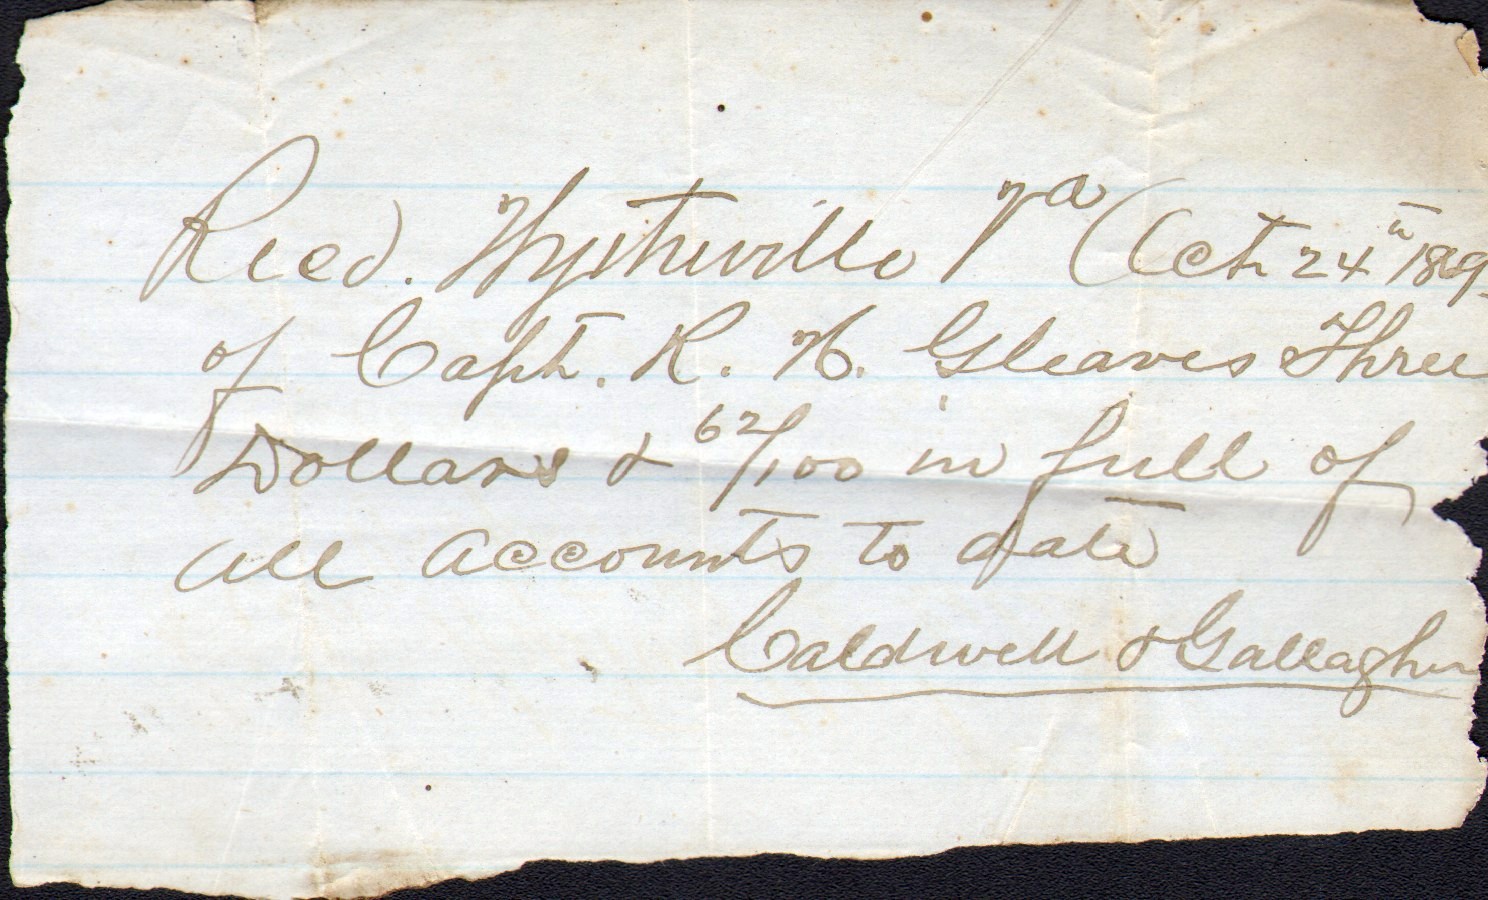 Recd. Wytheville Va Oct 24th 1869
of Capt. R. H. Gleaves Three
Dollars & 62/100 in full of
all accounts to date
Caldwell & Gallagher